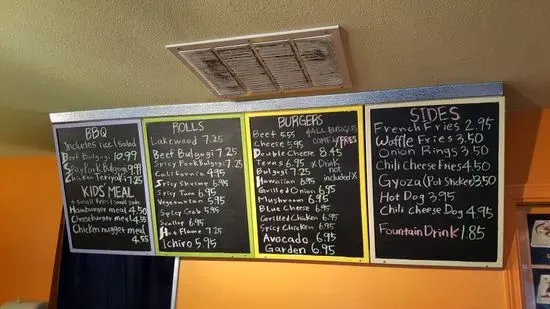 BBQ
Includes rice & salad
Beef Bulgogi 10.99
Spicy Pork Bulgogi 9.99
Chicken Teriyaki 7.25
KIDS MEAL
+ Small fries & small drink
Hamburger meal 4.50
Cheeseburger meal 4.55
Chicken nugget meal
4.55
ROLLS
Lakewood 7.25
Beef Bulgogi 7.25
Spicy Pork Bulgogi 7.25
California 4.95
Spicy Shrimp 6.95
Spicy Tuna 6.95
Vegetarian 5.95
Spicy Crab 5.95
Scallop 6.95
Hot Flame 7.25
Ichiro 5.95
BURGERS
Beef 5.55
Cheese 5.95
Double Cheese 8.45
Texas 6.95
Bulgogi 7.25
Hawaiian 6.95
Grilled Onion 6.95
Mushroom 6.95
Blue Cheese 6.95
Grilled Chicken 6.95
Spicy Chicken 6.95
Avocado 6.95
Garden 6.95
ALL BURGERS
COME W/ FRIES
X Drink
not
included X
SIDES
French Fries 2.95
Waffle Fries 3.50
Onion Rings 3.50
Chili Cheese Fries 4.50
Gyoza (Pot Sticker) 3.50
Hot Dog 3.95
Chili Cheese Dog 4.95
Fountain Drink 1.85